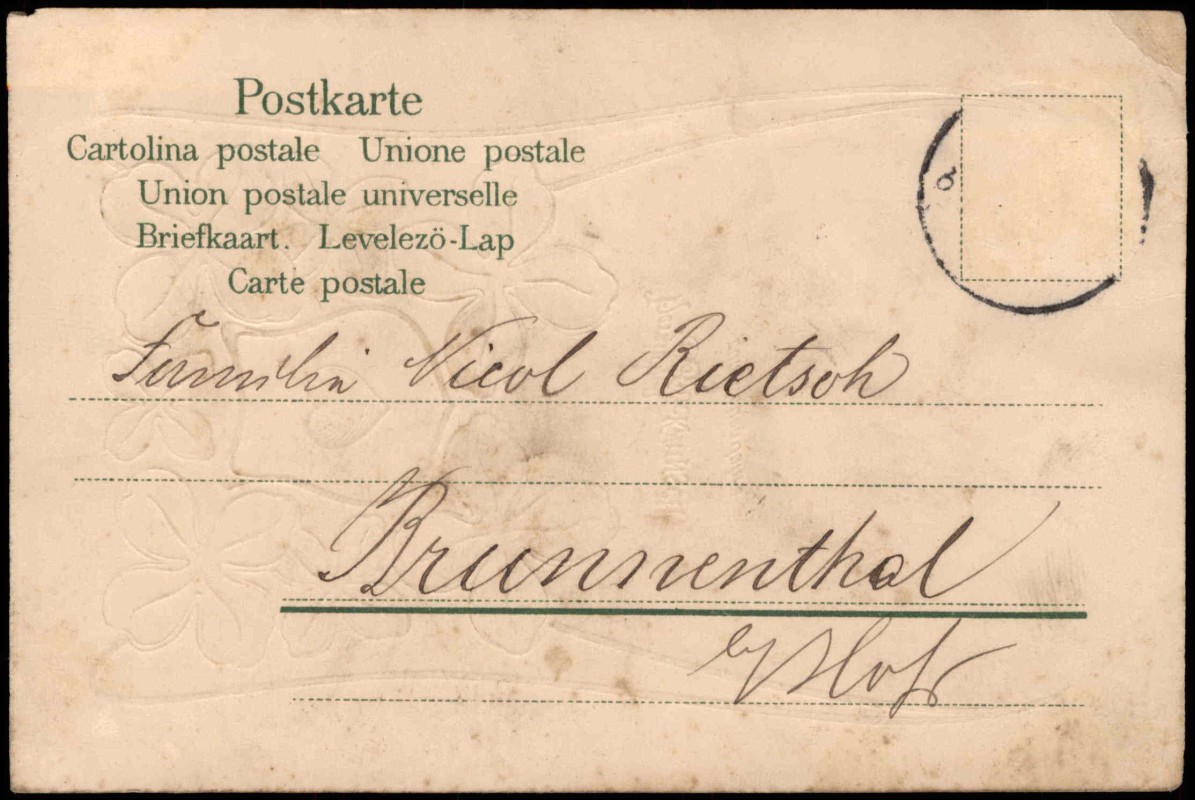 Postkarte
Cartolina postale Unione postale
Union postale universelle
Briefkaart. Levelezö-Lap
Carte postale
Familie Nicol Rietsch
Brunnenthal
b/Hof